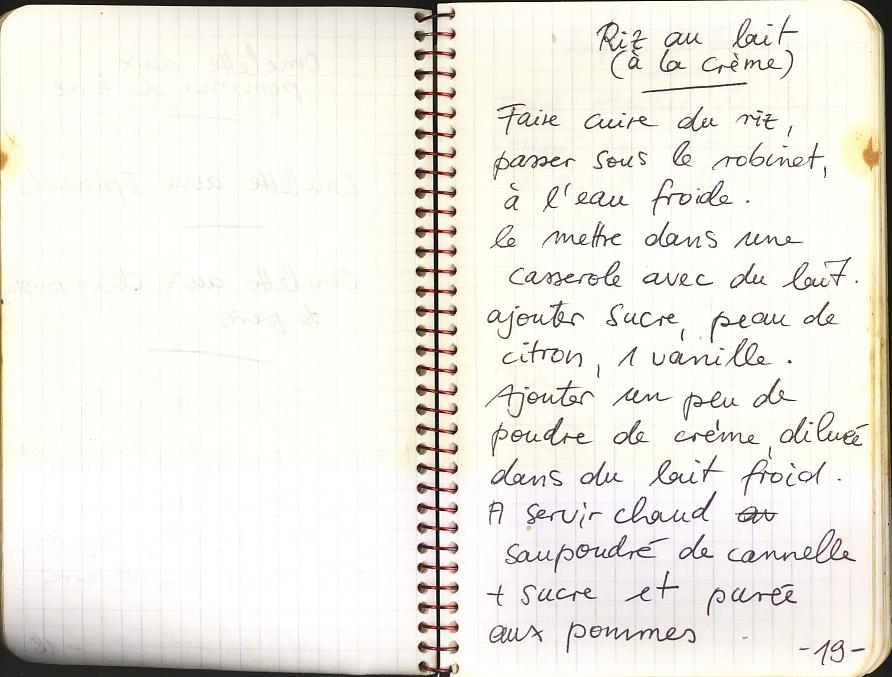 Riz au lait
(à la crème)
Faire cuire du riz,
passer sous le robinet,
à l'eau froide.
le mettre dans une
casserole avec du lait.
ajouter sucre, peau de
citron, 1 vanille.
Ajouter un peu de
poudre de crème, diluée
dans du lait froid.
A servir chaud
saupoudré de cannelle
+ sucre et purée
aux pommes
-19-